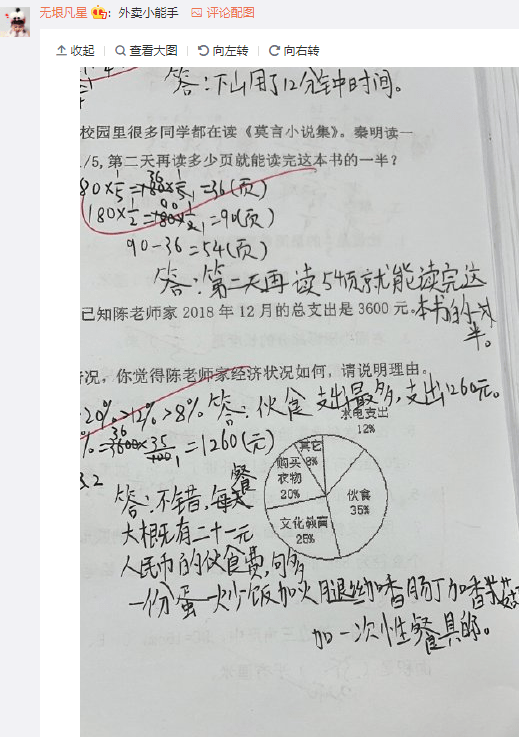 无垠凡星：外卖小能手 评论配图
收起 查看大图 向左转 向右转
答：下山用了12分钟时间。
校园里很多同学都在读《莫言小说集》。秦明读一
1/5，第二天再读多少页就能读完这本书的一半？
80×1/5=180×1/5=36(页)
180×1/2=180×1/2=90(页)
90-36=54(页)
答：第二天再读54页就能读完这
本书的一半。
已知陈老师家 2018 年 12 月的总支出是 3600 元。
情况，你觉得陈老师家经济状况如何，请说明理由。
20%>12%>8% 答：伙食支出最多，支出1260元。
%=3600×35/100=1260(元)
水电支出
12%
其它
8%
购买
衣物
20%
伙食
35%
文化教育
25%
3.2
答：不错，每餐
大概有二十一元
人民币的伙食费，够多
一份蛋炒饭加火腿丝加香肠丁加香菇
加一次性餐具的。